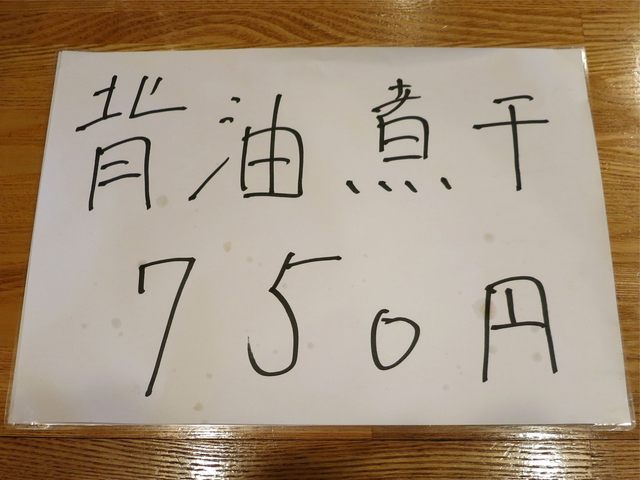 背油煮干
750円